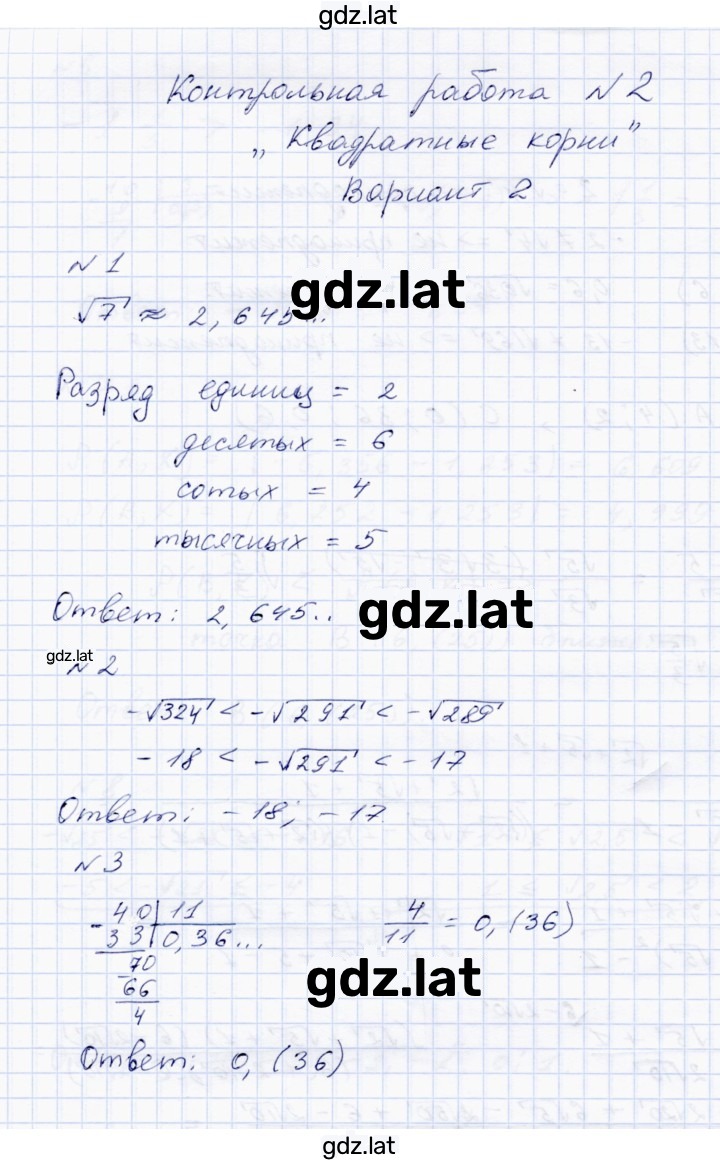 gdz.lat
Контрольная работа №2
„Квадратные корни"
Вариант 2
№1
gdz.lat
√7 ≈ 2,645...
Разряд единиц = 2
десятых = 6
сотых = 4
тысячных = 5
Ответ: 2,645..
gdz.lat
gdz.lat
№2
-√324 < -√291 < -√289
-18 < -√291 < -17
Ответ: -18; -17.
№3
40 | 11
- 33 | 0,36...
4/11 = 0,(36)
- 70
66
4
gdz.lat
Ответ: 0,(36)
gdz.lat